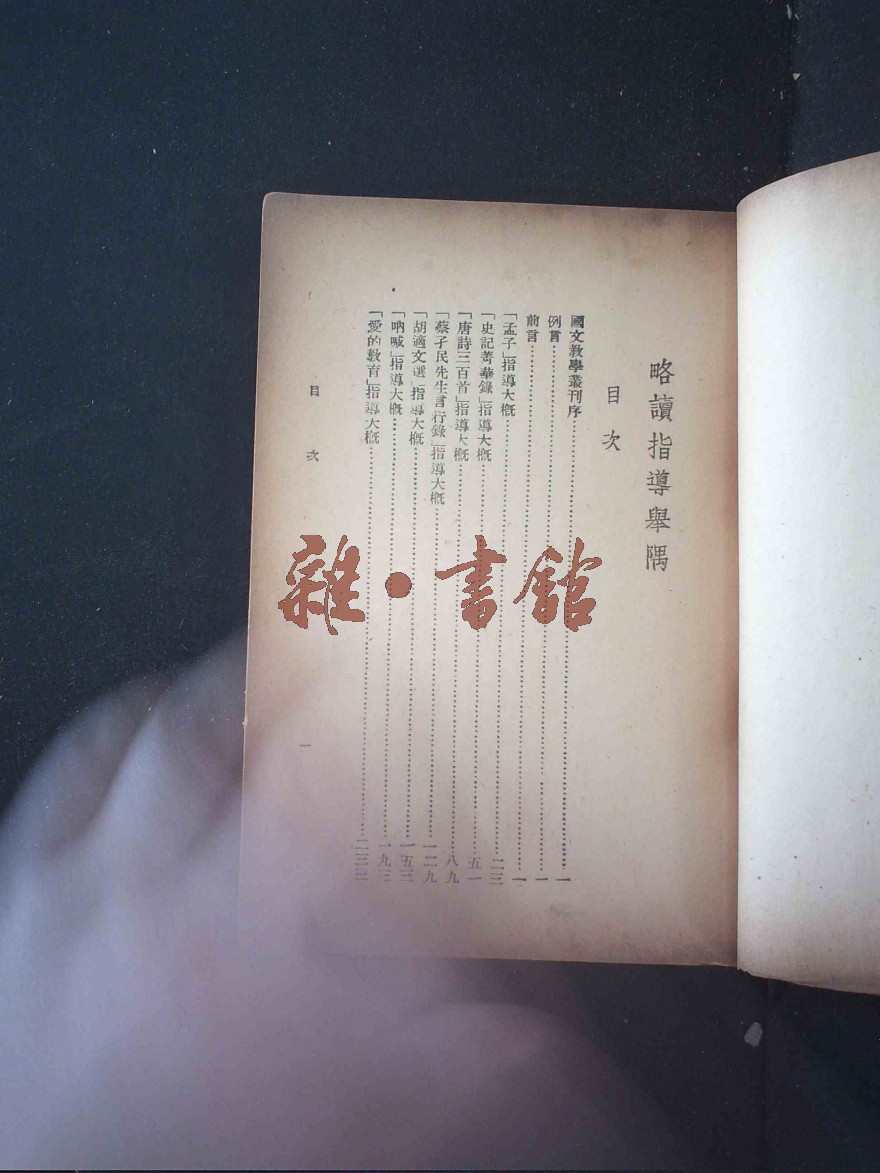 略讀指導舉隅
目次
國文教學叢刊序……一
例言……一
前言……一
「孟子」指導大概……二三
「史記菁華錄」指導大概……五一
「唐詩三百首」指導大概……八九
「蔡孑民先生言行錄」指導大概……一二九
「胡適文選」指導大概……一五三
「吶喊」指導大概……一九三
「愛的教育」指導大概……二三三
目次
一
雜·書館